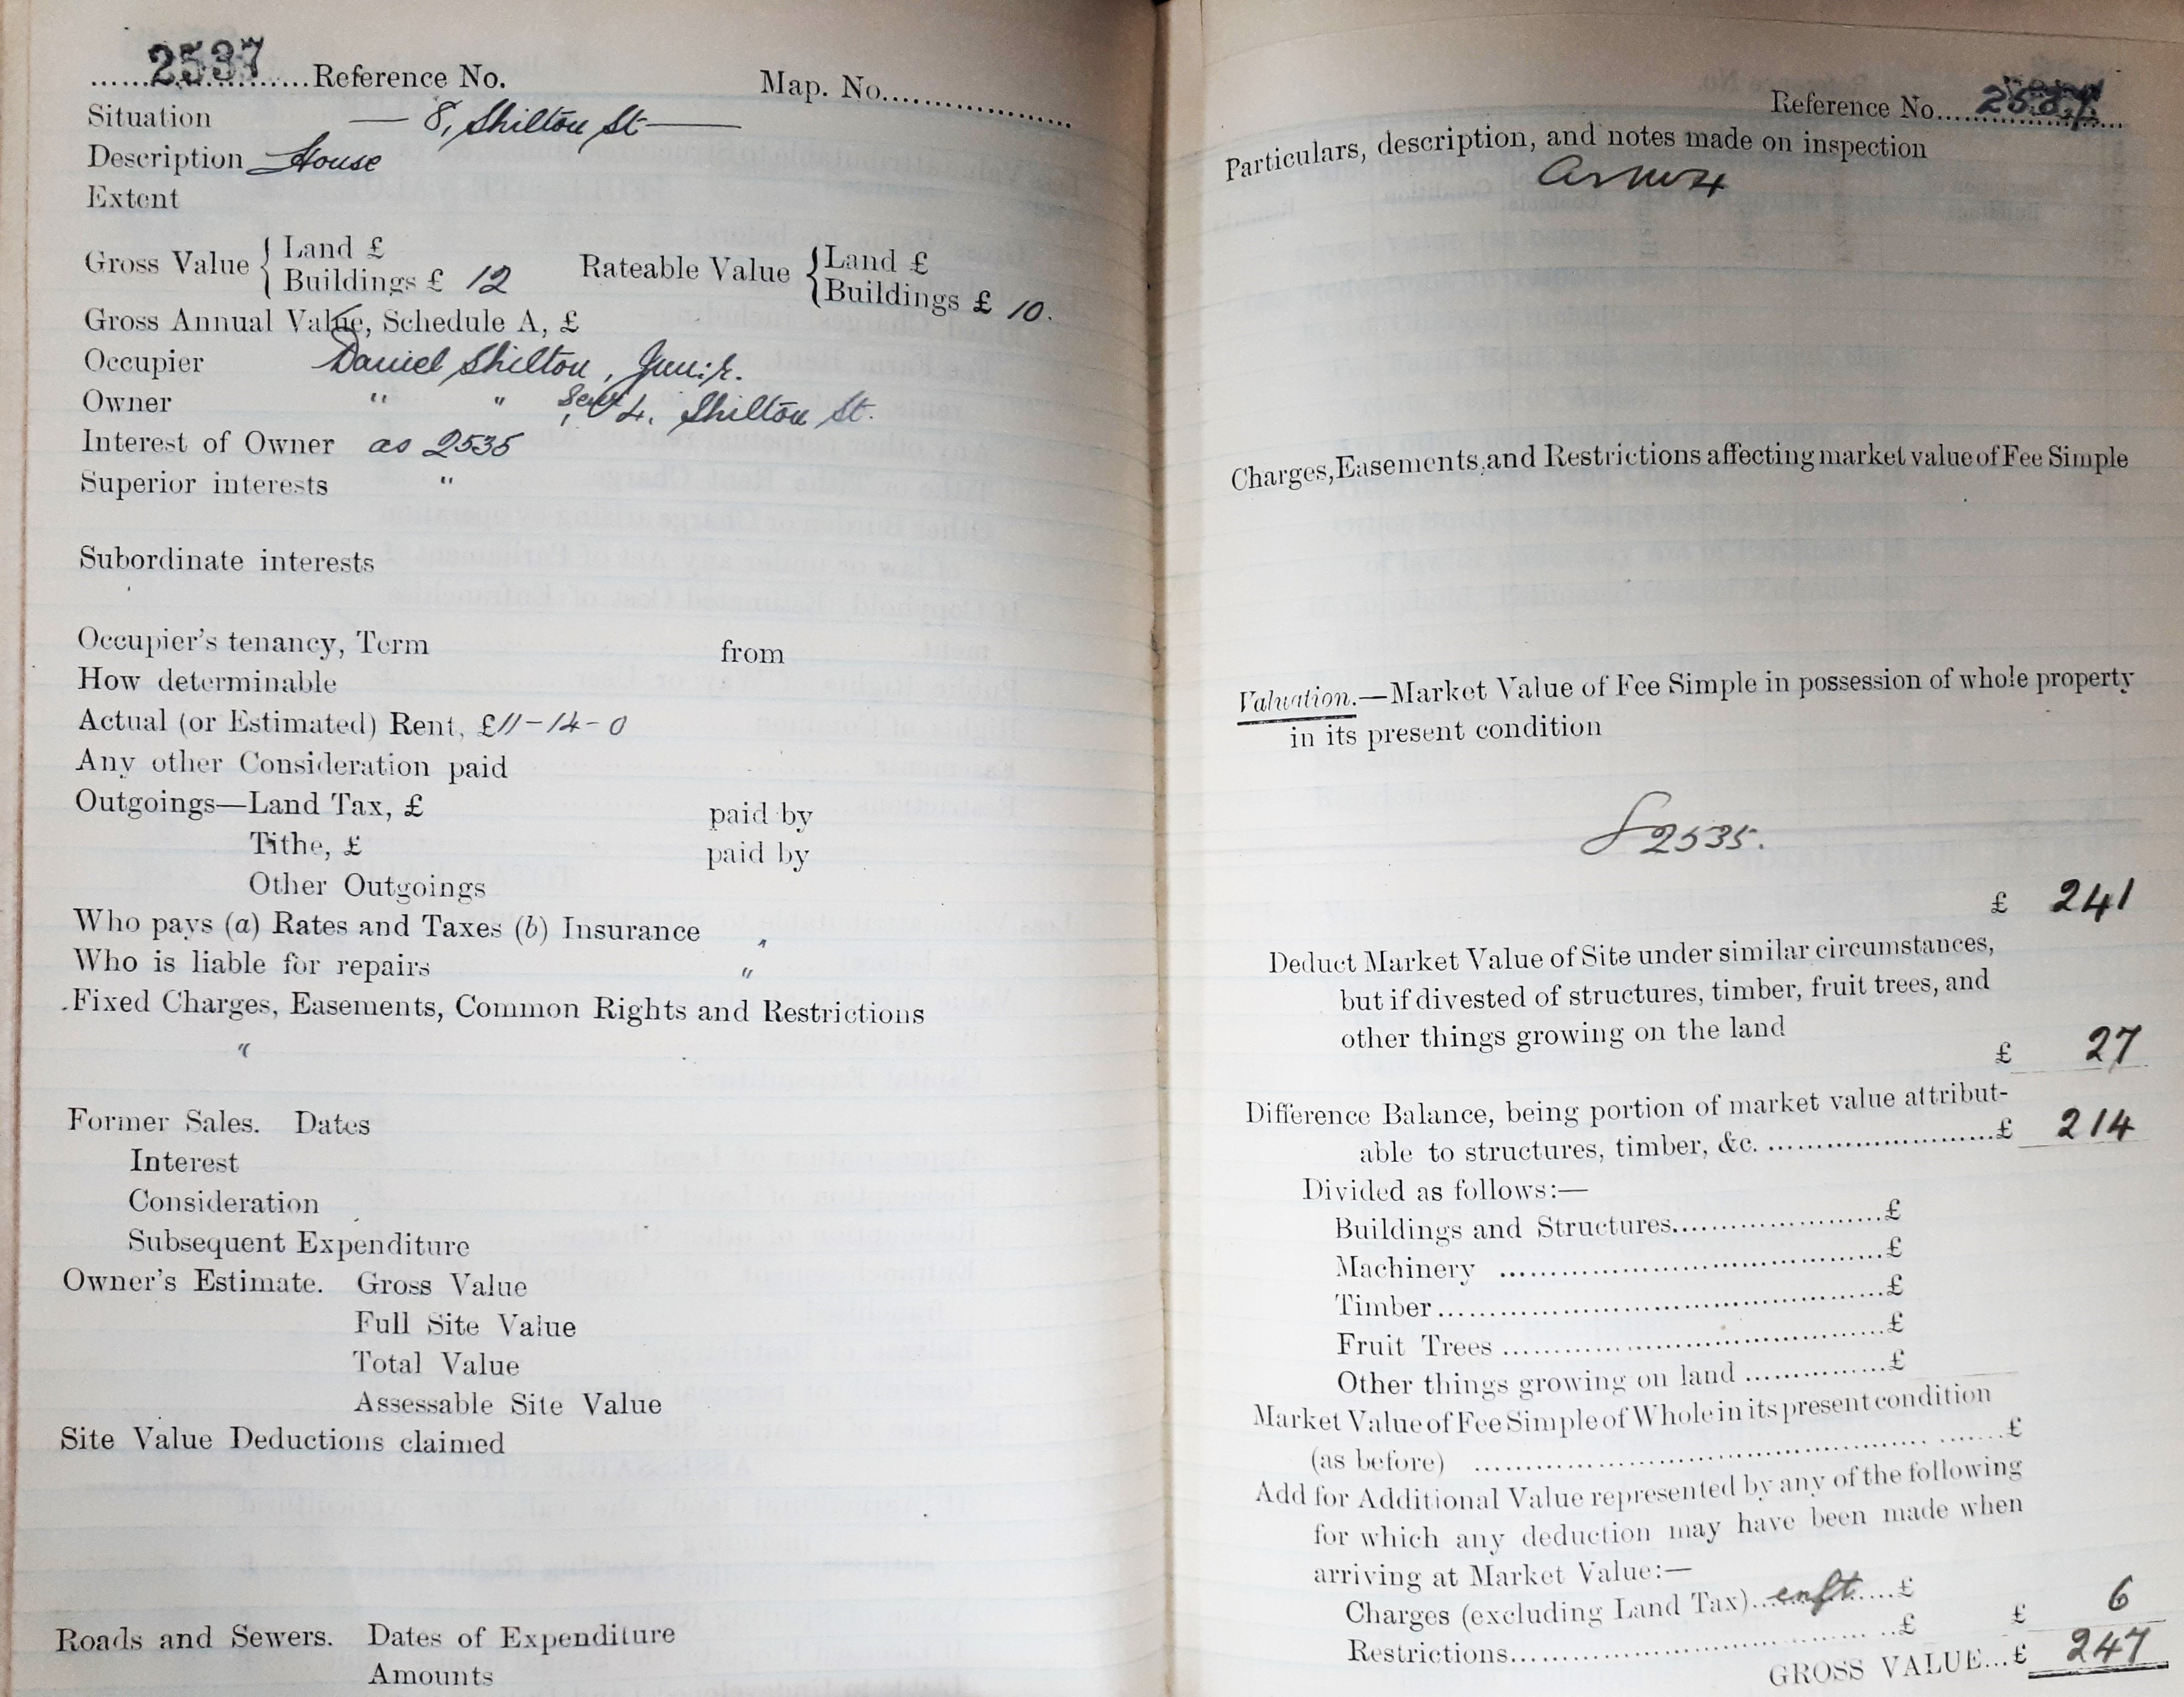 2537 Reference No. Map. No.
Situation — 8, Shilton St —
Description House
Extent
Gross Value { Land £
Buildings £ 12
Rateable Value { Land £
Buildings £ 10.
Gross Annual Value, Schedule A, £
Occupier Daniel Shilton, Junr.
Owner " " Senr, 4. Shilton St.
Interest of Owner as 2535
Superior interests "
Subordinate interests
Occupier's tenancy, Term from
How determinable
Actual (or Estimated) Rent, £11-14-0
Any other Consideration paid
Outgoings—Land Tax, £ paid by
Tithe, £ paid by
Other Outgoings
Who pays (a) Rates and Taxes (b) Insurance "
Who is liable for repairs "
Fixed Charges, Easements, Common Rights and Restrictions
"
Former Sales. Dates
Interest
Consideration
Subsequent Expenditure
Owner's Estimate. Gross Value
Full Site Value
Total Value
Assessable Site Value
Site Value Deductions claimed
Roads and Sewers. Dates of Expenditure
Amounts
Reference No. 2537
Particulars, description, and notes made on inspection
As No 4
Charges, Easements, and Restrictions affecting market value of Fee Simple
Valuation.—Market Value of Fee Simple in possession of whole property
in its present condition
2535.
£ 241
Deduct Market Value of Site under similar circumstances,
but if divested of structures, timber, fruit trees, and
other things growing on the land
£ 27
Difference Balance, being portion of market value attribut-
able to structures, timber, &c. £ 214
Divided as follows:—
Buildings and Structures £
Machinery £
Timber £
Fruit Trees £
Other things growing on land £
Market Value of Fee Simple of Whole in its present condition
(as before) £
Add for Additional Value represented by any of the following
for which any deduction may have been made when
arriving at Market Value:—
Charges (excluding Land Tax) enft £
Restrictions £ £ 6
GROSS VALUE...£ 247